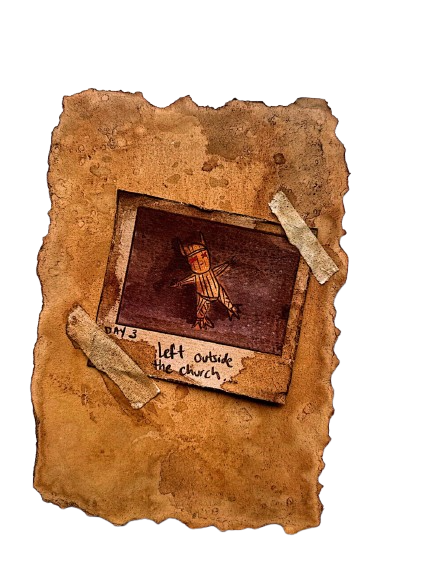 DAY 3
left outside
the church.